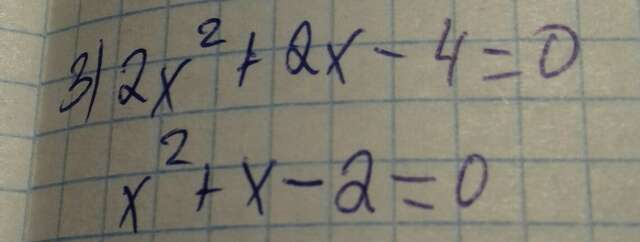 3) 2x² + 2x - 4 = 0
x² + x - 2 = 0